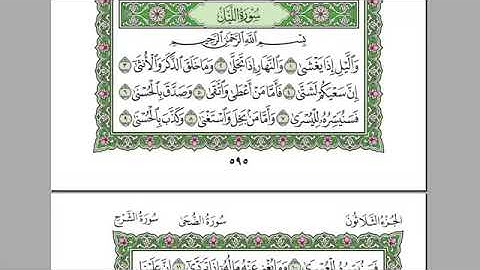 سُورَةُ اللَّيْلِ
بِسْمِ اللَّهِ الرَّحْمَٰنِ الرَّحِيمِ
وَاللَّيْلِ إِذَا يَغْشَىٰ ١ وَالنَّهَارِ إِذَا تَجَلَّىٰ ٢ وَمَا خَلَقَ الذَّكَرَ وَالْأُنثَىٰ ٣
إِنَّ سَعْيَكُمْ لَشَتَّىٰ ٤ فَأَمَّا مَنْ أَعْطَىٰ وَاتَّقَىٰ ٥ وَصَدَّقَ بِالْحُسْنَىٰ ٦
فَسَنُيَسِّرُهُ لِلْيُسْرَىٰ ٧ وَأَمَّا مَن بَخِلَ وَاسْتَغْنَىٰ ٨ وَكَذَّبَ بِالْحُسْنَىٰ ٩
٥٩٥
الجُزْءُ الثَّلَاثُونَ سُورَةُ الضُّحَى سُورَةُ الشَّرْحِ
فَسَنُيَسِّرُهُ لِلْعُسْرَىٰ ١٠ وَمَا يُغْنِي عَنْهُ مَالُهُ إِذَا تَرَدَّىٰ ١١ إِنَّ عَلَيْنَا